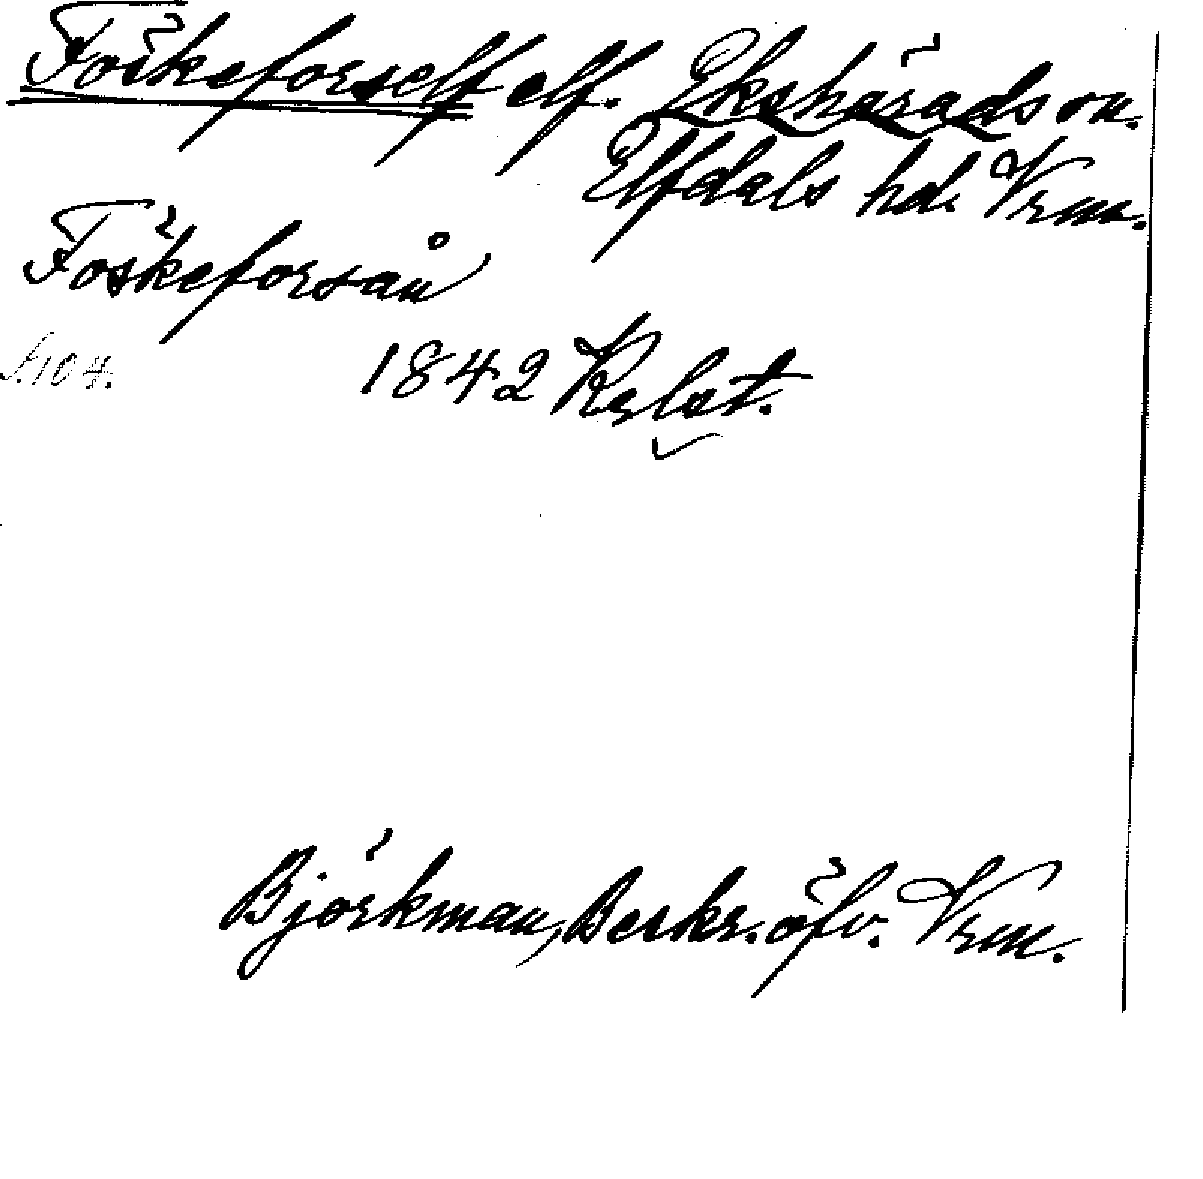 Föskeforself elf. Ekshärads sn.
Elfdals hd. Vrm.
Föskeforsån
s. 104. 1842 Rglst.
Björkman, Beskr. öfv. Vrm.